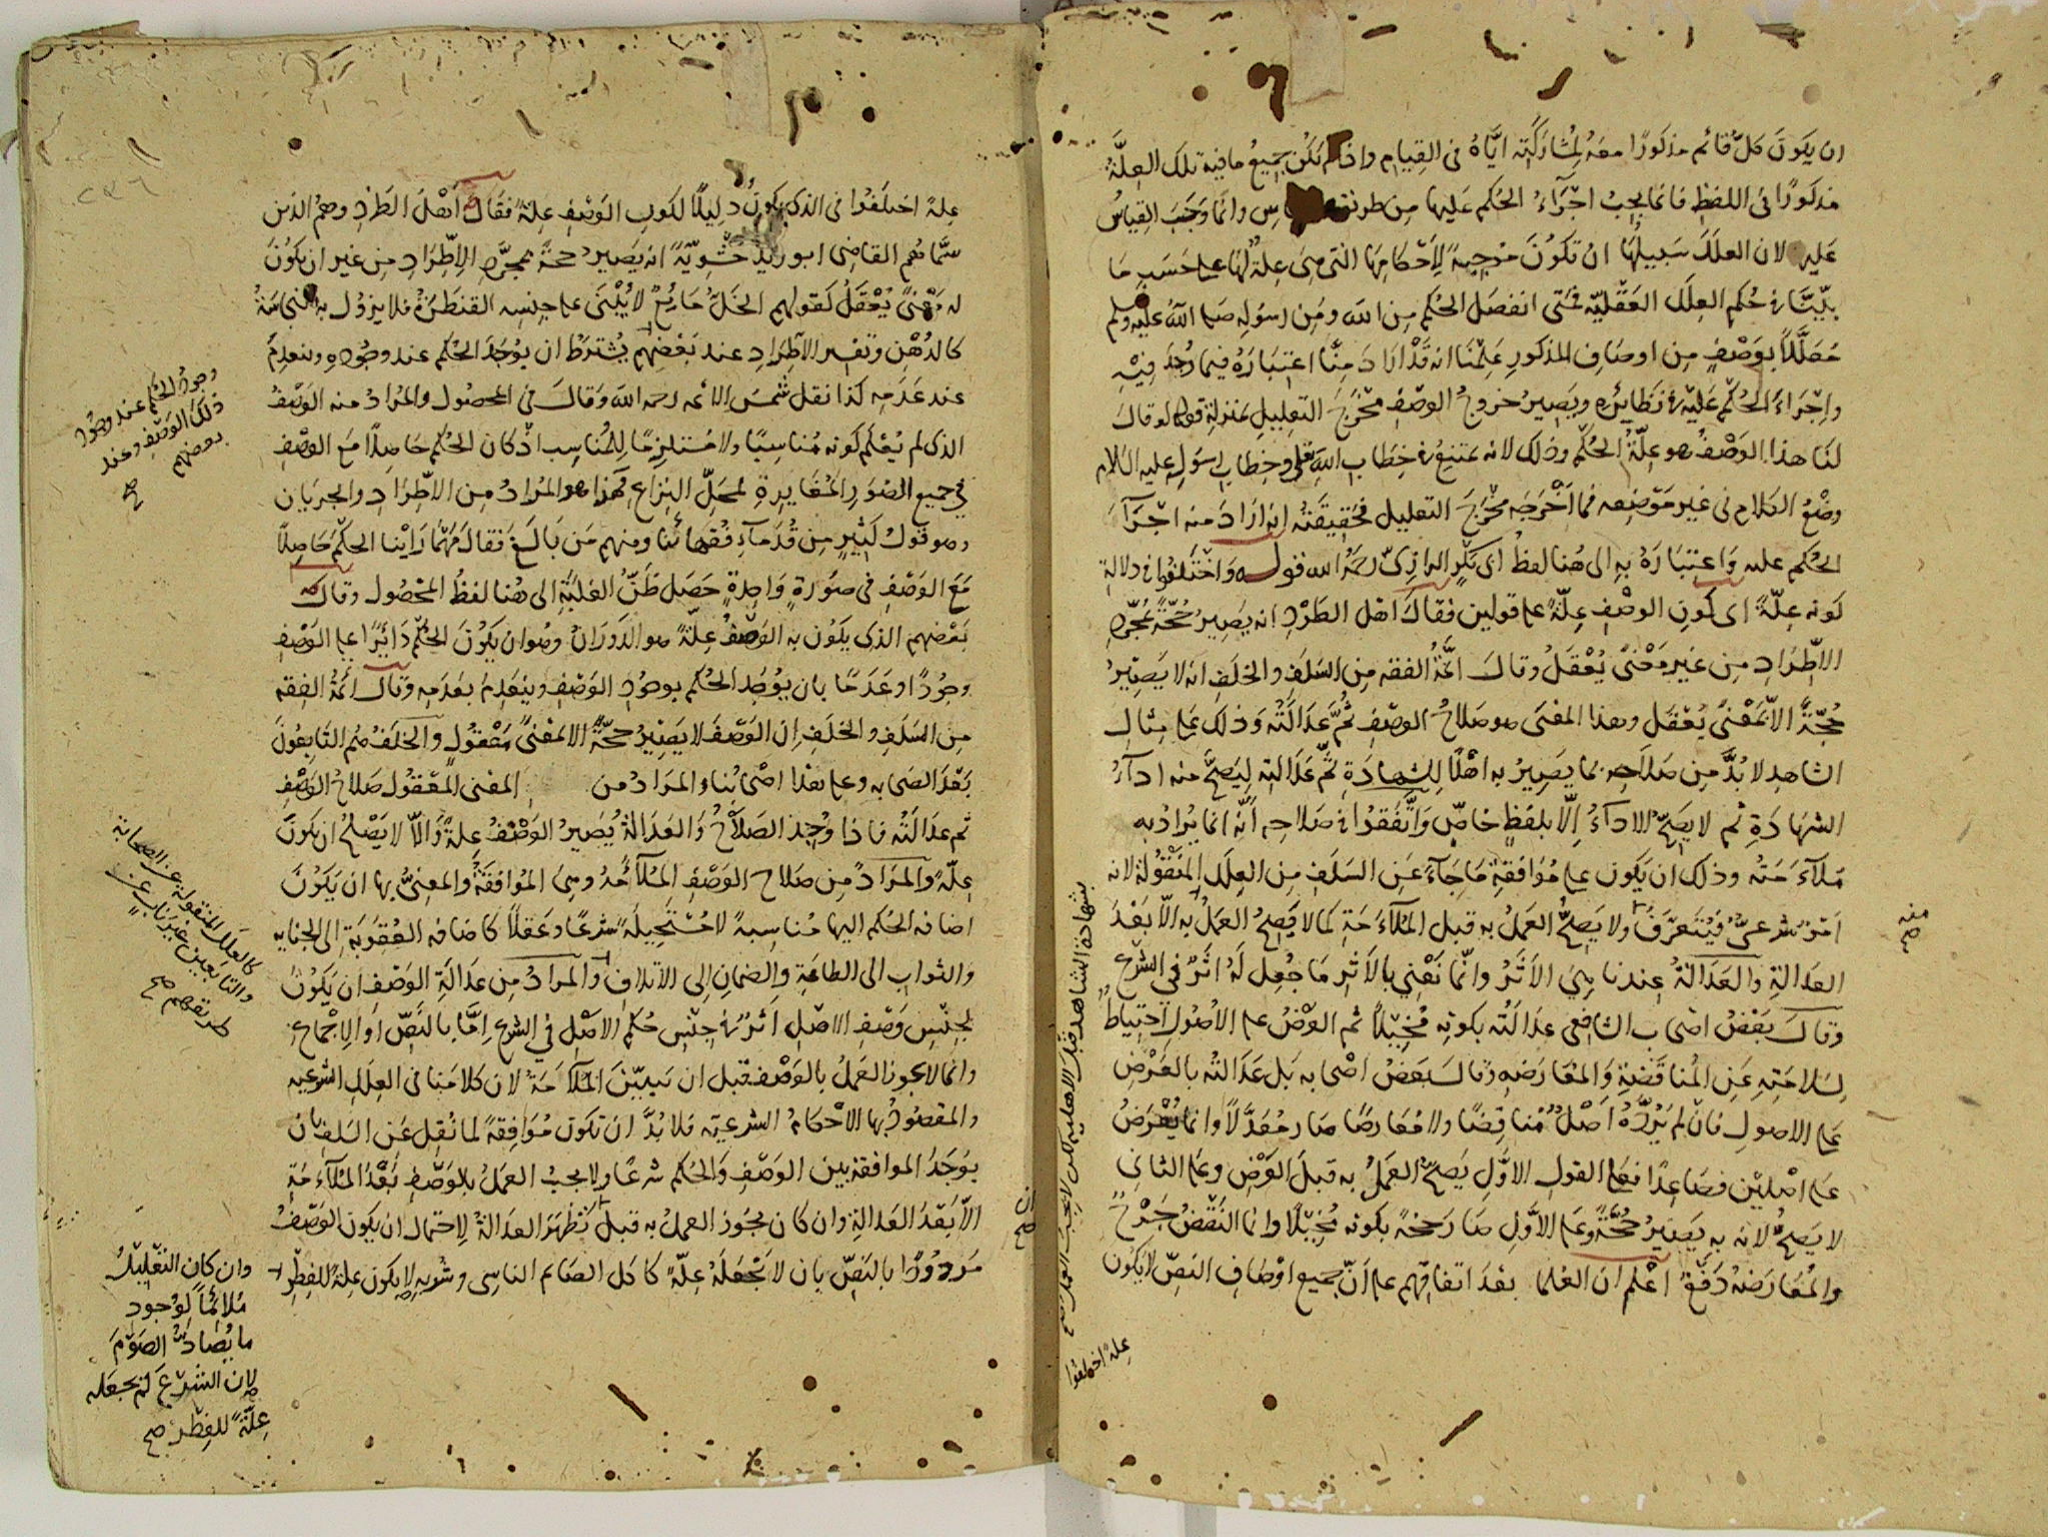 ان يكون كل قائم مذكورا معه لمشاركته اياه في القيام واذا لم يكن جميع ما فيه تلك العلة
مذكورا في اللفظ فانما يجب اجراء الحكم عليها من طريق القياس وانما وجب القياس
عليه لان العلل سبيلها ان تكون موجبة لاحكامها التي هي علة لها على حسب ما
بينا في حكم العلل العقلية فمتى انفصل الحكم من الله ومن رسوله صلى الله عليه وسلم
معللا بوصف من اوصاف المذكور علمنا انه قد اراد منا اعتباره فيما وجد فيه
واجراء الحكم عليه في نظائره ويصير خروج الوصف مخرج التعليل بمنزلة قوله لو قال
لنا هذا الوصف هو علة الحكم وذلك لانه يمتنع في خطاب الله تعالى وخطاب رسوله عليه السلام
وضع الكلام في غير موضعه فما اخرجه مخرج التعليل فحقيقته انه اراد منه اجراء
الحكم عليه واعتباره به الى هنا لفظ ابي بكر الرازي رحمه الله قوله واختلفوا في دلالة
كونه علة اي كون الوصف علة على قولين فقال اهل الطرد انه يصير حجة بمجرد
الاطراد من غير معنى يعقل وقال ائمة الفقه من السلف والخلف انه لا يصير
حجة الا بمعنى يعقل وهذا المعنى هو صلاح الوصف ثم عدالته وذلك على مثال
الشاهد لا بد من صلاحه بما يصير به اهلا للشهادة ثم عدالته ليصح منه اداء
الشهادة ثم لا يصح الاداء الا بلفظ خاص واتفقوا في صلاحه انه انما يراد به
ملاءمته وذلك ان يكون على موافقة ما جاء عن السلف من العلل المنقولة لانه
امر شرعي فيتعرف ولا يصح العمل به قبل الملاءمة كما لا يصح العمل به الا بعد
منه صح
العدالة والعدالة عندنا هي الاثر وانما نعني بالاثر ما جعل له اثر في الشرع
وقال بعض اصحاب الشافعي عدالته بكونه مخيلا ثم العرض على الاصول احتياط
لسلامته عن المناقضة والمعارضة وقال بعض اصحابه بل عدالته بالعرض
على الاصول فان لم يرده اصل مناقضا ولا معارضا صار معدلا وانما يعرض
على اصلين فصاعدا فعلى القول الاول يصح العمل به قبل العرض وعلى الثاني
لا يصح لانه به يصير حجة وعلى الاول صار حجة بكونه مخيلا وانما النقض جرح
والمعارضة دفع اعلم ان العلما بعد اتفاقهم على ان جميع اوصاف النص لا يكون
علة اختلفوا
علة اختلفوا في الذي يكون دليلا لكون الوصف علة فقال اهل الطرد وهم الذين
سماهم القاضي ابو زيد حشوية انه يصير حجة بمجرد الاطراد من غير ان يكون
له معنى يعقل كقولهم الخل مايع لا يبنى على جنسه القنطرة فلا يزول به النجاسة
كالدهن وتفسير الاطراد عند بعضهم يشترط ان يوجد الحكم عند وجوده وينعدم
وجود الحكم عند وجود
ذلك الوصف وعند
بعضهم
صح
عند عدمه كذا نقل شمس الائمه رحمه الله وقال في المحصول والمراد منه الوصف
الذي لم يعلم كونه مناسبا ولا مستلزما للمناسب اذ كان الحكم حاصلا مع الوصف
في جميع الصور المغايرة لمحل النزاع فهذا هو المراد من الاطراد والجريان
وهو قول كثير من قدماء فقهائنا ومنهم من بالغ فقال مهما راينا الحكم حاصلا
مع الوصف في صورة واحدة حصل ظن الغلبة الى هنا لفظ المحصول وقال
بعضهم الذي يكون به الوصف علة هو الدوران وهو ان يكون الحكم دائرا على الوصف
وجودا وعدما بان يوجد الحكم بوجود الوصف وينعدم بعدمه وقال ائمة الفقه
من السلف والخلف ان الوصف لا يصير حجة الا لمعنى معقول والخلف هم التابعون
بعد الصحابه وعلى هذا اصحابنا والمراد من المعنى المعقول صلاح الوصف
ثم عدالته فاذا وجد الصلاح والعدالة يصير الوصف علة والا لا يصلح ان يكون
علة والمراد من صلاح الوصف الملاءمة وهي الموافقة والمعنى بها ان يكون
كالعلل المنقولة عن الصحابة
والتابعين غير ناب عن
طريقهم صح
اضافه الحكم اليها مناسبة لا مستحيلة شرعا وعقلا كاضافه العقوبة الى الجنايه
والثواب الى الطاعة والضمان الى الاتلاف والمراد من عدالة الوصف ان يكون
لجنس وصف الاصل اثر في جنس حكم الاصل في الشرع اما بالنص او الاجماع
وانما لا يجوز العمل بالوصف قبل ان تتبين الملاءمة لان كلامنا في العلل الشرعيه
والمقصود بها الاحكام الشرعيه فلا بد ان تكون موافقة لما نقل عن السلف بان
يوجد الموافقة بين الوصف والحكم شرعا ولا يجب العمل بالوصف بعد الملاءمة
الا بعد العدالة وان كان يجوز العمل به قبل تظهر العدالة لاحتمال ان يكون الوصف
ان
صح
مردودا بالنص بان لا تجعله علة كاكل الصائم الناسي وشربه لا يكون علة للفطر
وان كان التعليل
ملائما لوجود
ما يضاد الصوم
لان الشرع لم يجعله
علة للفطر صح